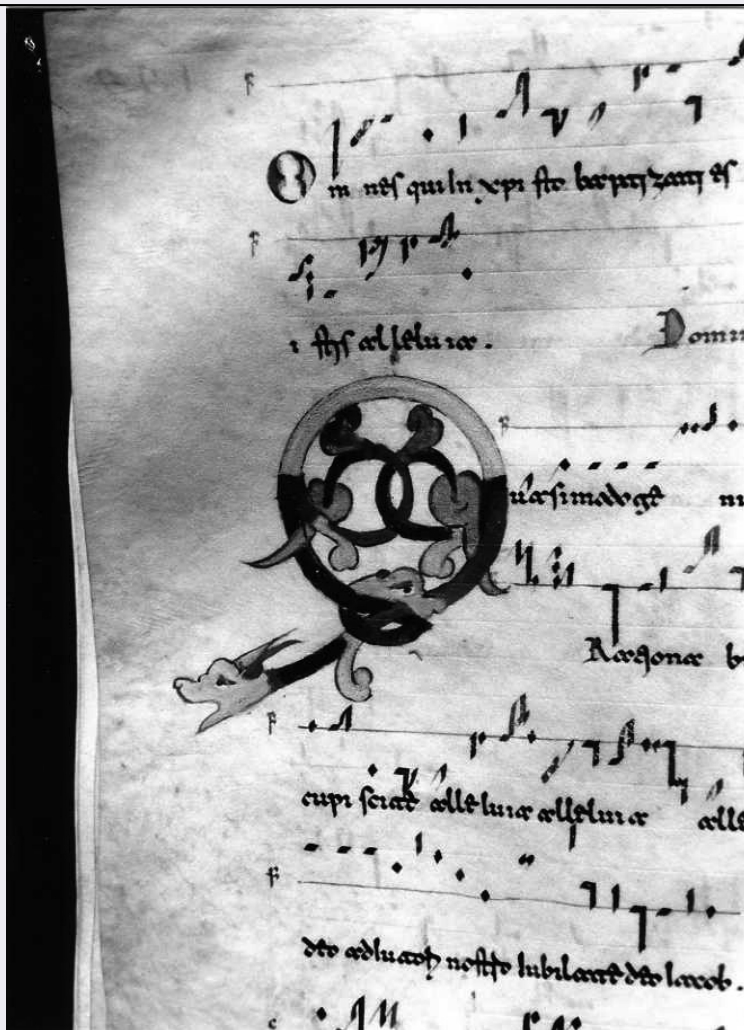 F
Om nes qui In xpi sto baptizati es
F
i stis alleluia. Domi
F
Quasi modo ge ni
Rationa b
F
cupi scite alleluia alleluia alle
F
deo adiutori nostro Iubilate deo Iacob.
c